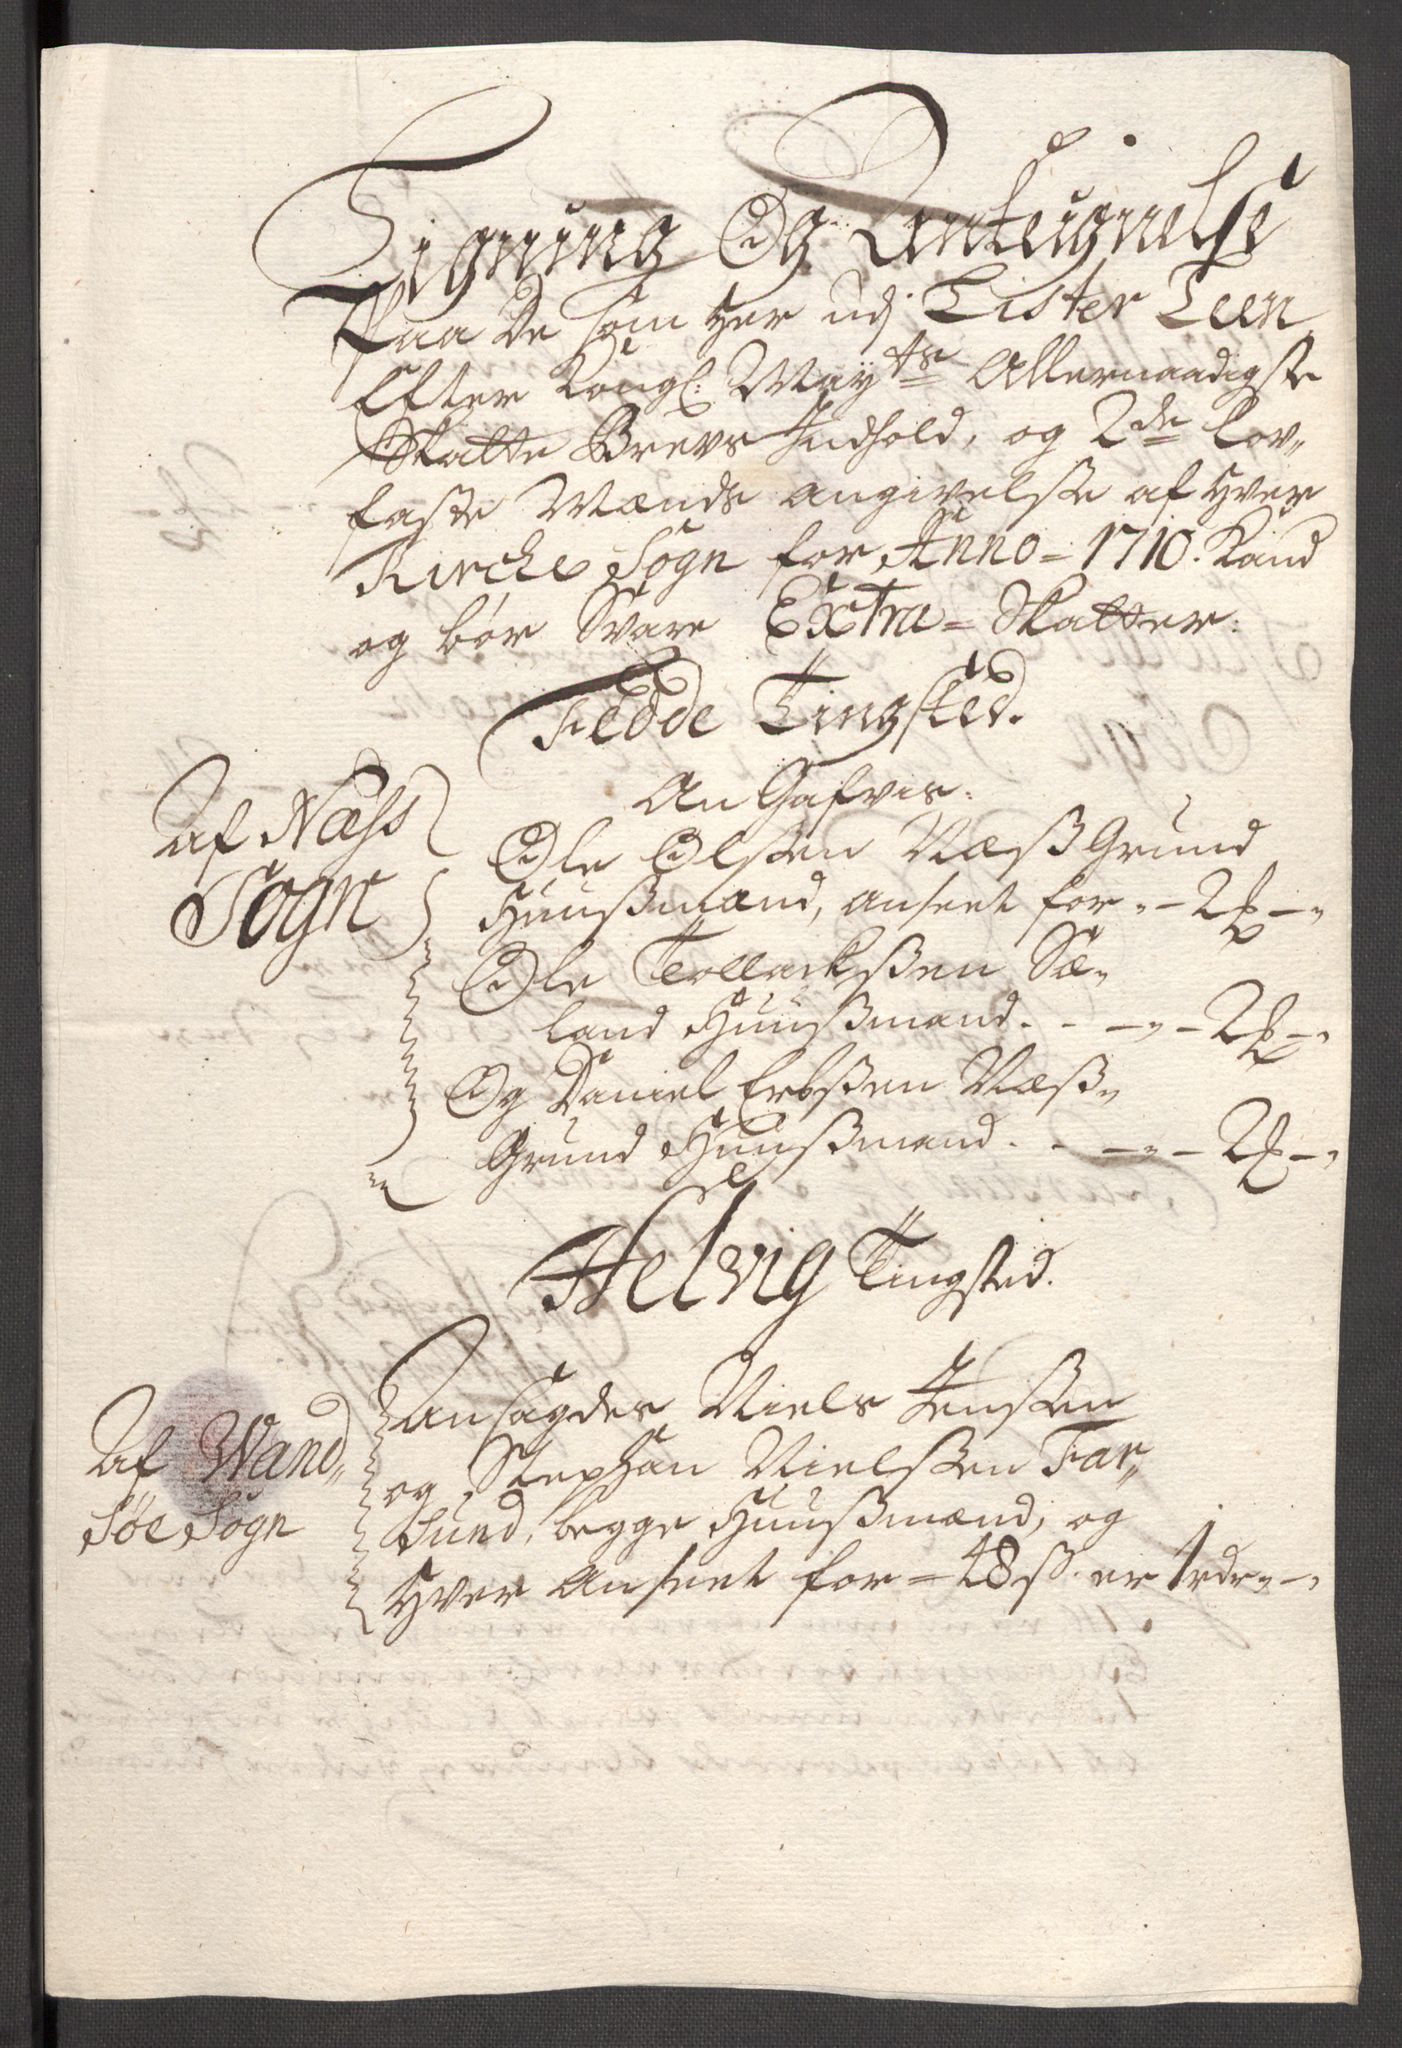 Ligning Og Anteignelse
Paa De som her udj Lister Leen
Efter Kongl: Mayts Allernaadigste
Skatte Brevs Indhold, og 2de Lov-
faste Mænds angivelse af hver
Kirche Sogn for Anno = 1710. Kand
og bør Svare Extra = Skatter:
Fedde Tingsted.
An Gafvis:
Af Næss
Sogn
Ole Olssen NæssGrund
Huussmand, anseet for „ - 2 - „
Ole Tollackssen Sæ-
land Huussmand . . - „ - 2 - „
Og Daniel Erbssen Næss-
Grund Huussmand . . - „ - 2 - „
Helvig Tingsted.
Af Wand-
Søe Sogn
Ansagdes Niels Jenssen
og Stephan Nielssen Far-
sund, begge Huussmænd, og
hver Anseet for = 48 s. er 1 rdr „ - „